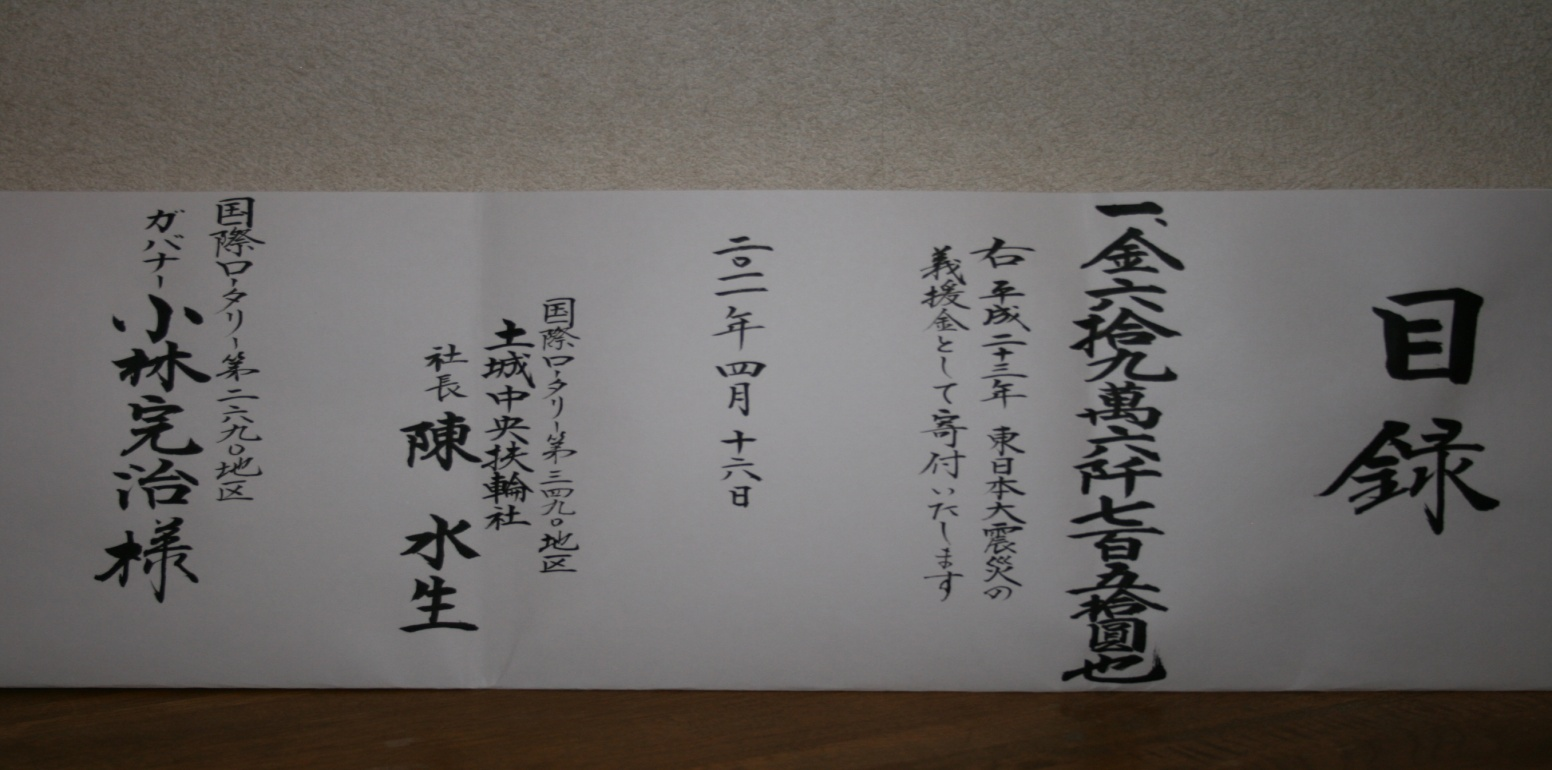 目録
一、金六拾九萬六阡七百五拾圓也
右 平成二十三年 東日本大震災の
義援金として寄付いたします
二〇一一年 四月 十六日
国際ロータリー第三四九〇地区
土城中央扶輪社
社長 陳 水生
国際ロータリー第二六九〇地区
ガバナー 小林完治様